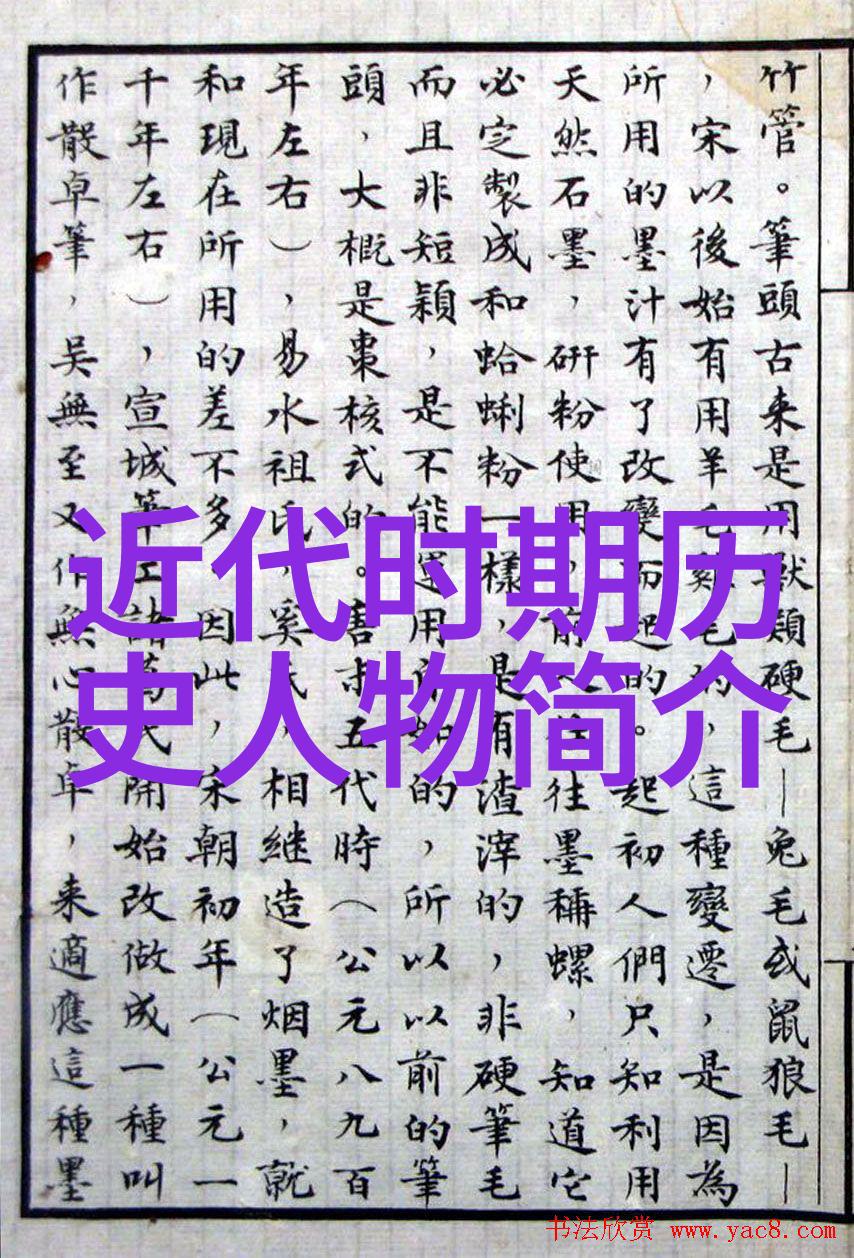 竹管。筆頭古来是用獸類硬毛—兔毛或鼠狼毛—
，宋以後始有用羊毛雞毛的，這種變遷，是因為
所用的墨汁有了改變而起的。起初人們只知利用
天然石墨，研粉使用，前往墨稱螺，知道它
必定製成和蛤蜊粉一樣，是有渣滓的，非硬筆毛
而且非短穎，是不能運用如的，所以以前的筆
頭，大概是棗核式的。唐末五代時（公元八九百
年左右），易水祖氏，奚氏，相継造了烟墨，就
和現在所用的差不多，因此，宋朝初年（公元一
千年左右），宣城筆工諸葛氏開始改做成一種叫
作散卓筆，吴無至又作無心散卓，来適應這種墨
近代时期历
史人物简介
书法欣赏 www.yac8.com